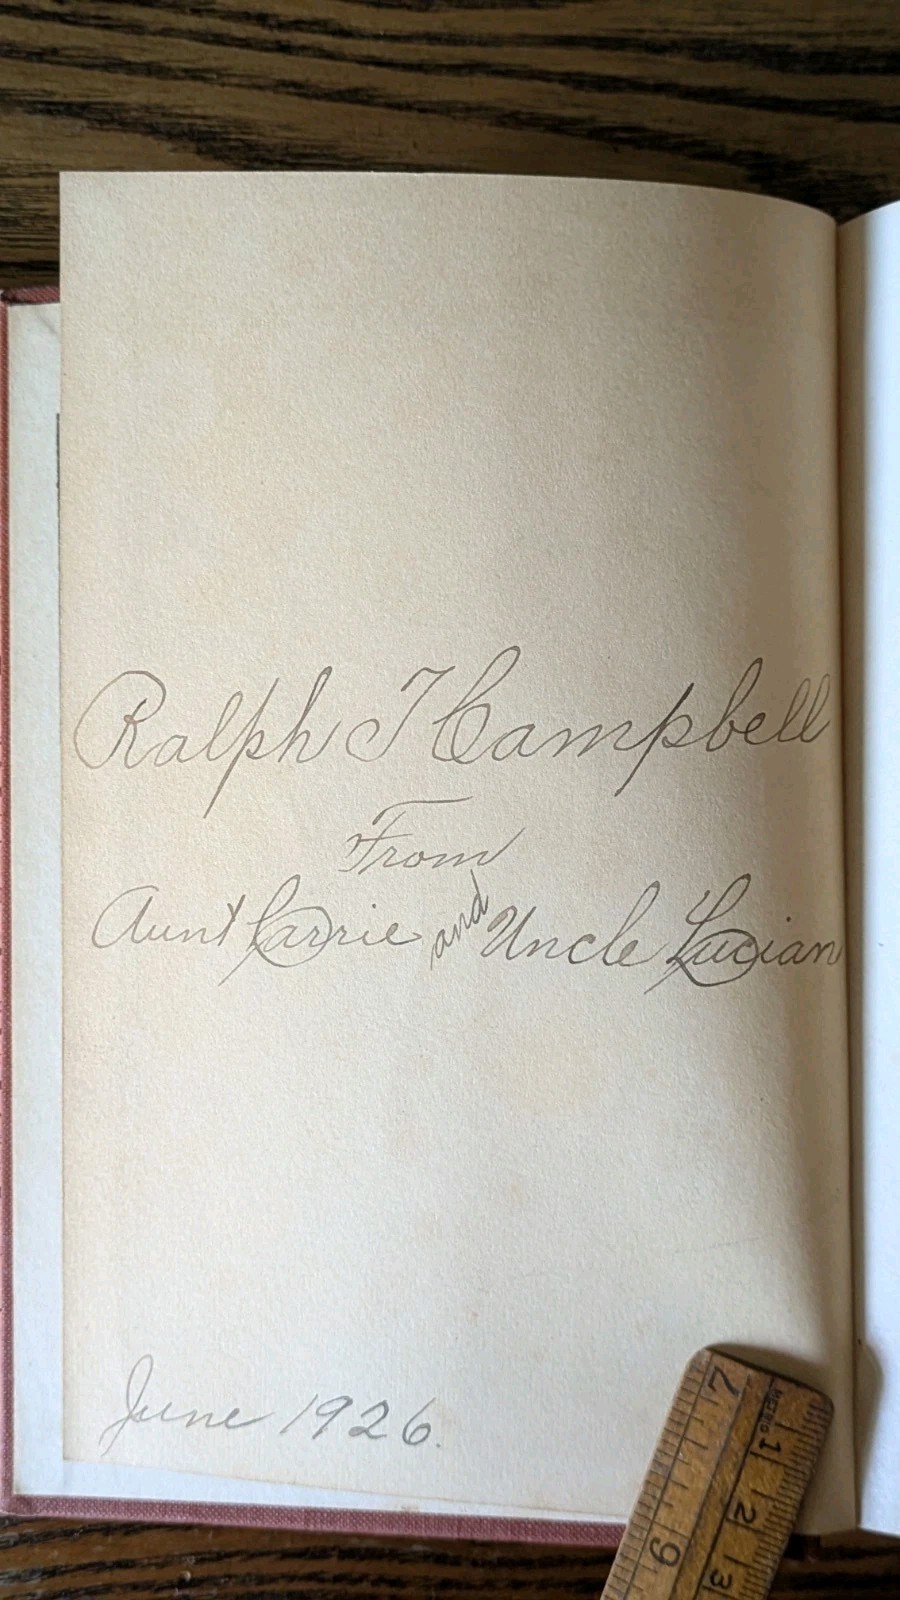 Ralph T Campbell
From
Aunt Carrie and Uncle Lucian
June 1926.
7
6
METRIC 1
2
3